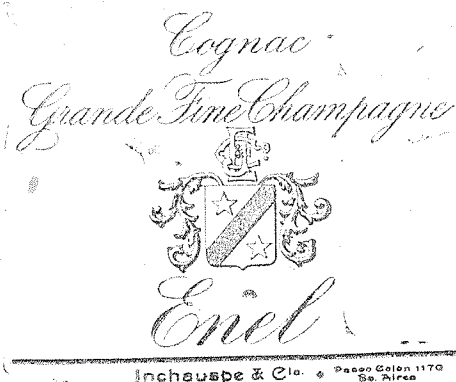 Cognac
Grande Fine Champagne
Enel
Inchauspe & Cia. Paseo Colon 1170
Bs. Aires